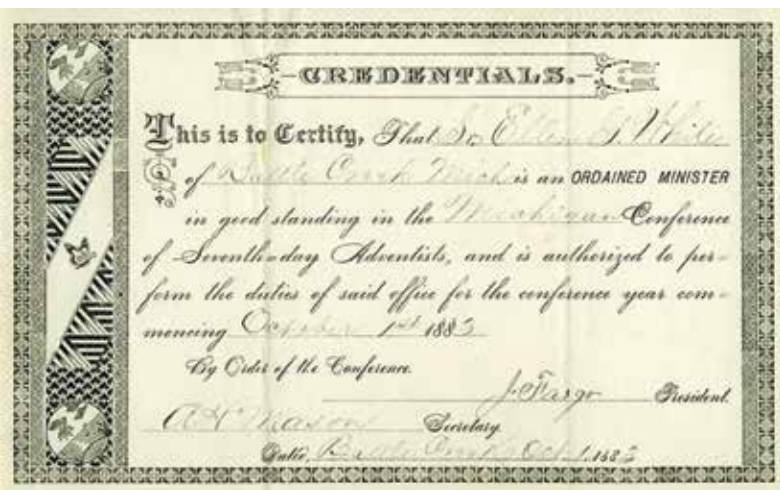 CREDENTIALS.
This is to Certify, That Sr. Ellen G. White
of Battle Creek Mich is an ORDAINED MINISTER
in good standing in the Michigan Conference
of Seventh-day Adventists, and is authorized to per-
form the duties of said office for the conference year com-
mencing October 1st 1883
By Order of the Conference.
J. Fargo President.
A. H. Mason Secretary.
Dated, Battle Creek Oct 1, 1883